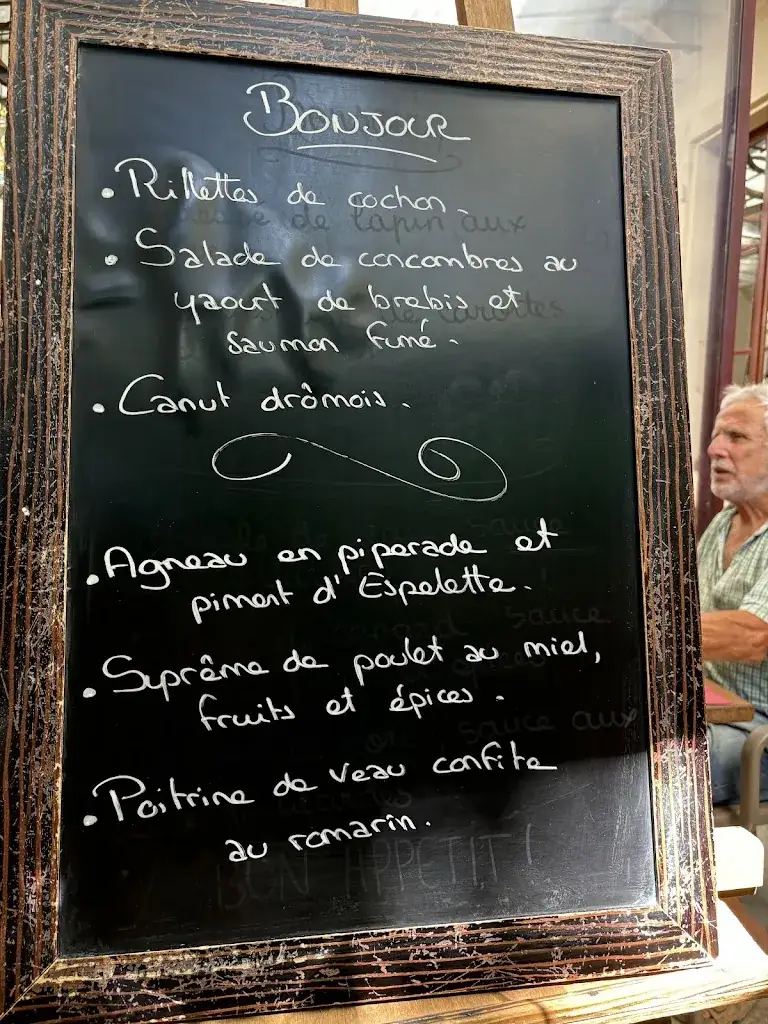 BONJOUR
• Rillettes de cochon.
• Salade de concombres au
yaourt de brebis et
saumon fumé.
• Canut drômois.
• Agneau en piperade et
piment d'Espelette.
• Suprême de poulet au miel,
fruits et épices.
• Poitrine de veau confite
au romarin.
BON APPETIT!